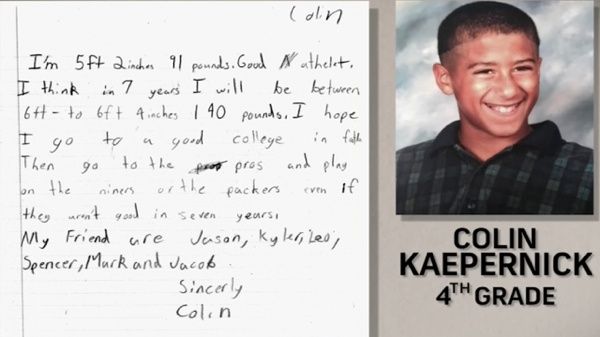 Colin
I'm 5ft 2inches 91 pounds. Good athelet.
I think in 7 years I will be between
6ft - to 6ft 4inches 190 pounds. I hope
I go to a good college in
Then go to the pros and play
on the niners or the packers even if
they aren't good in seven years.
My Friend are Jason, Kyler, Leo,
Spencer, Mark and Jacob.
Sincerly
Colin
COLIN
KAEPERNICK
4TH GRADE